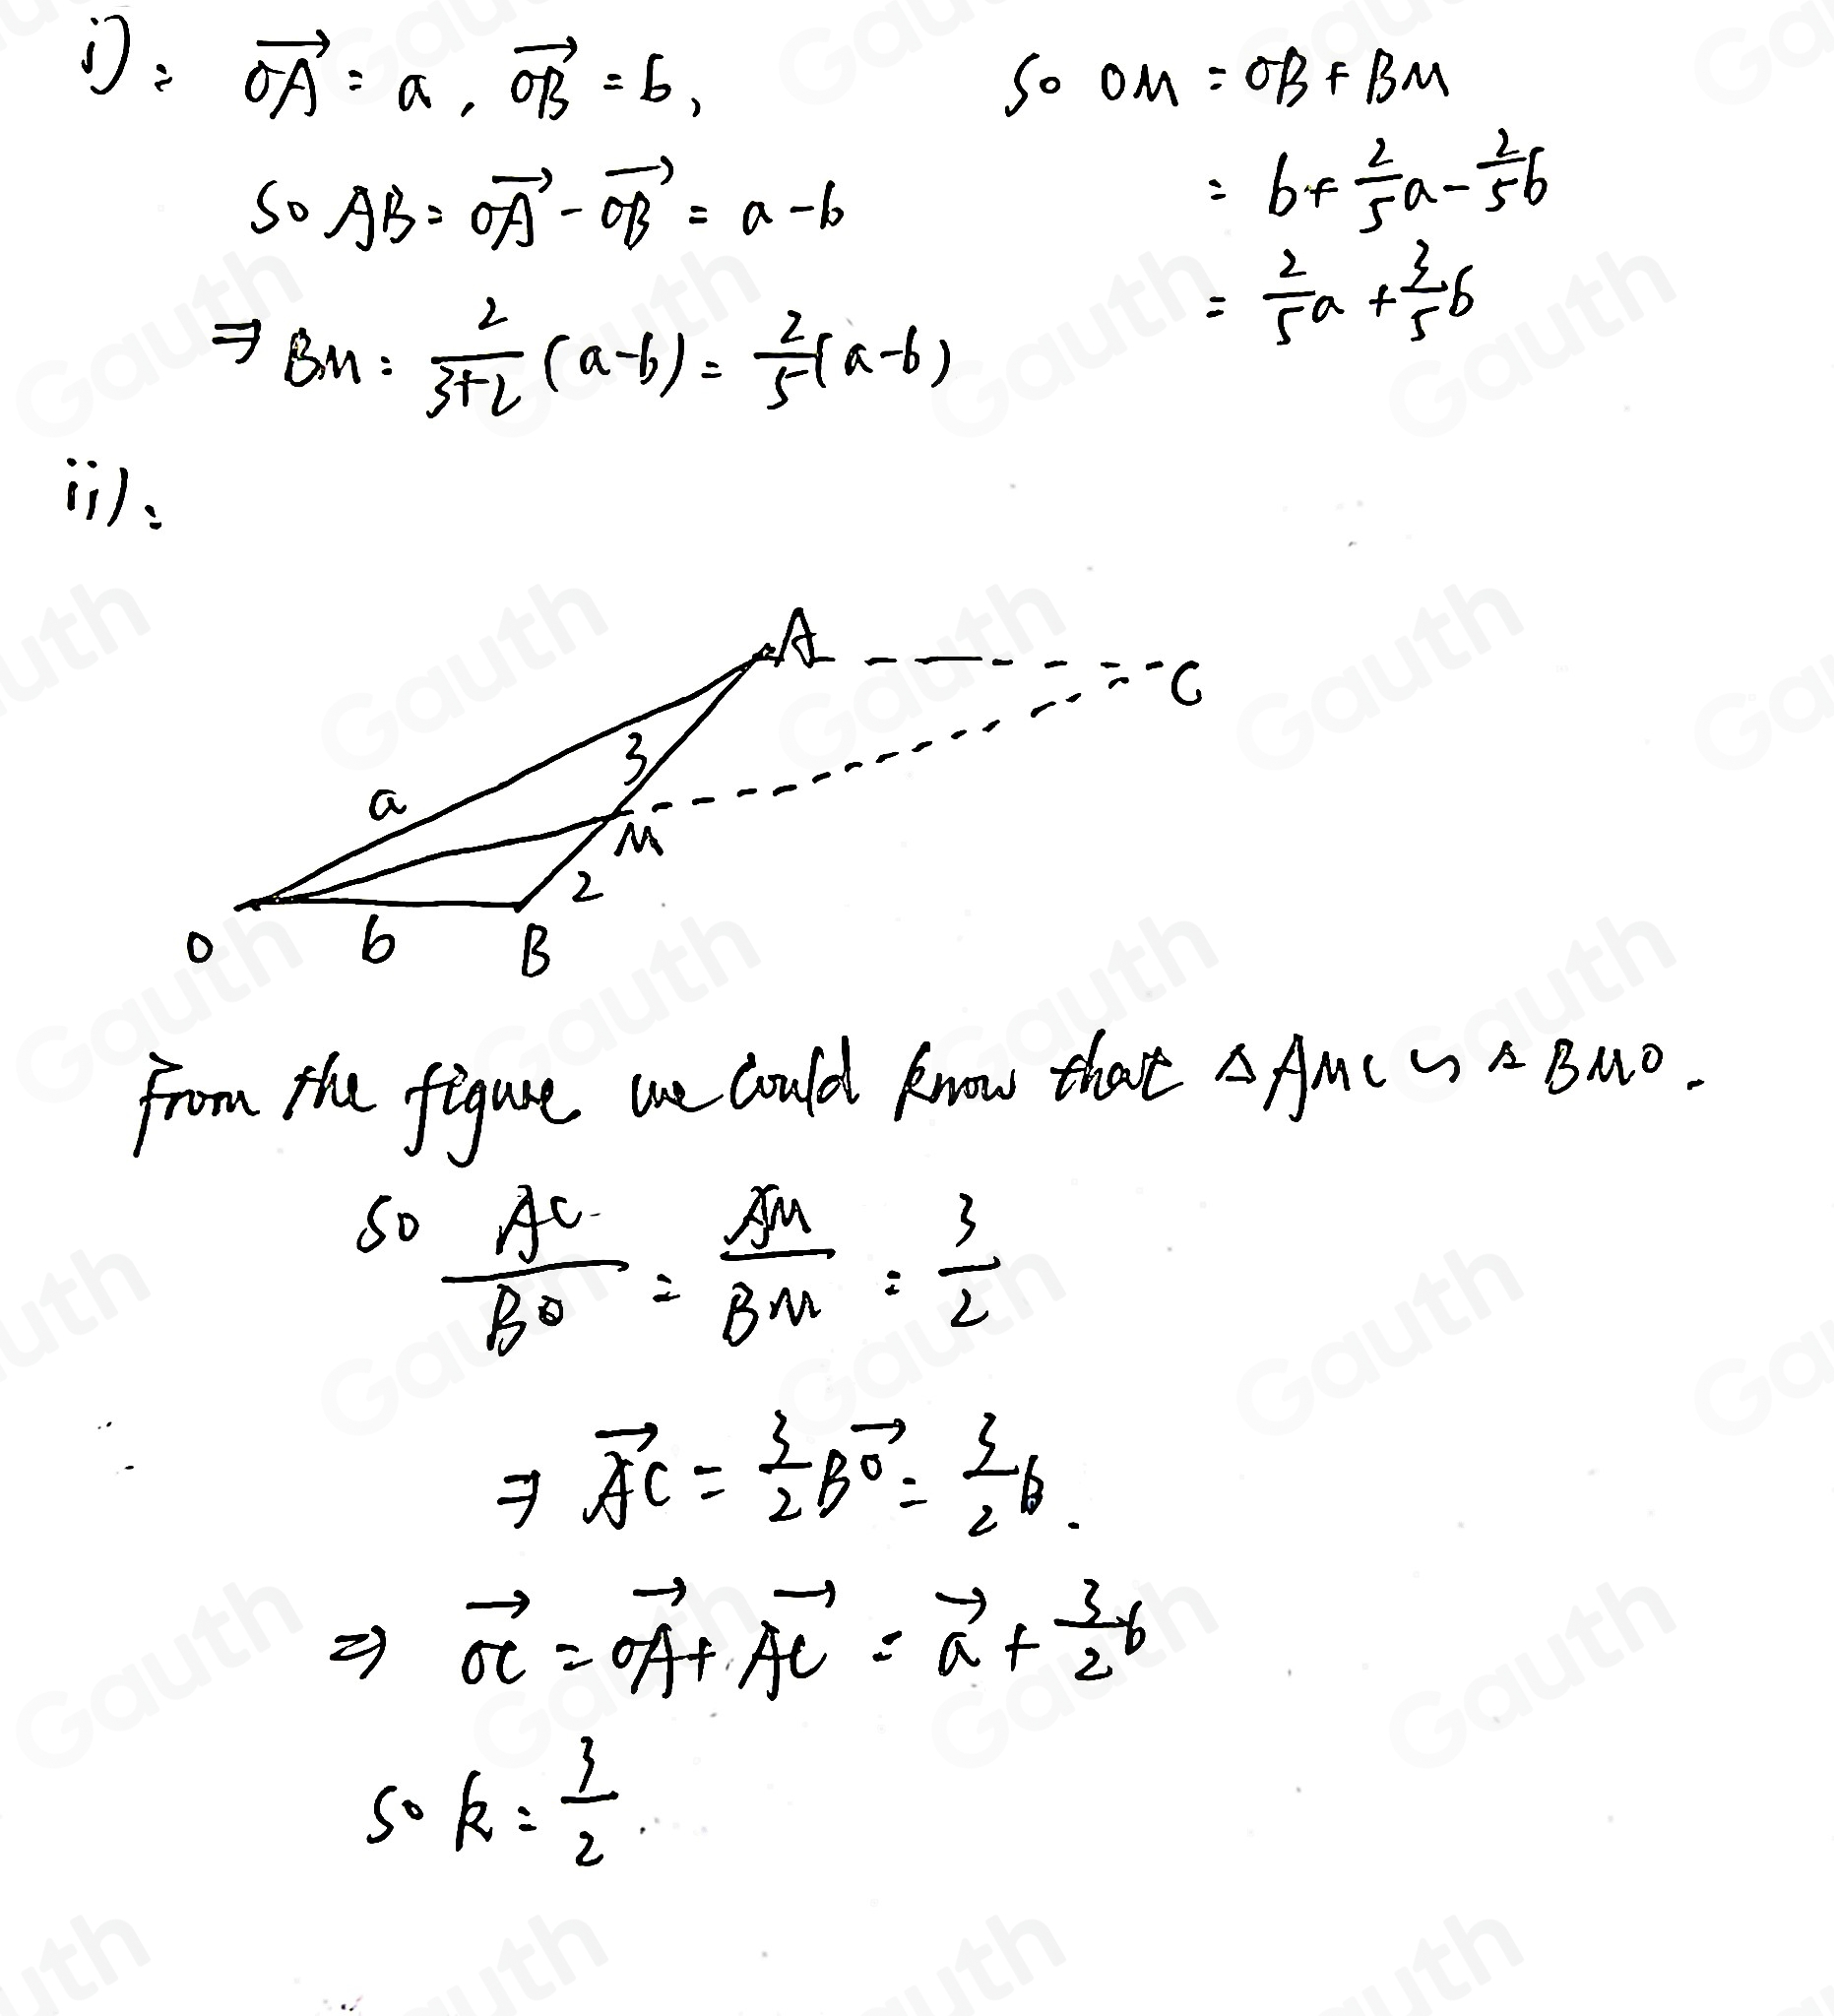 i):  $\overrightarrow{OA}$ = a, $\overrightarrow{OB}$ = b,
so AB = $\overrightarrow{OA}$ - $\overrightarrow{OB}$ = a - b
⇒ BM = $\frac{2}{3+2}$ (a-b) = $\frac{2}{5}$(a-b)
so OM = OB + BM
= b + $\frac{2}{5}$a - $\frac{2}{5}$b
= $\frac{2}{5}$a + $\frac{3}{5}$b
ii):
A
C
3
a
M
2
O
b
B
From the figure we could know that △AMC ∽ △BMO.
so $\frac{AC}{BO}$ = $\frac{AM}{BM}$ = $\frac{3}{2}$
⇒ $\overrightarrow{AC}$ = $\frac{3}{2}$$\overrightarrow{BO}$ = $\frac{3}{2}$b.
⇒ $\overrightarrow{OC}$ = $\overrightarrow{OA}$ + $\overrightarrow{AC}$ = $\overrightarrow{a}$ + $\frac{3}{2}$b
so k = $\frac{3}{2}$.
Gauth